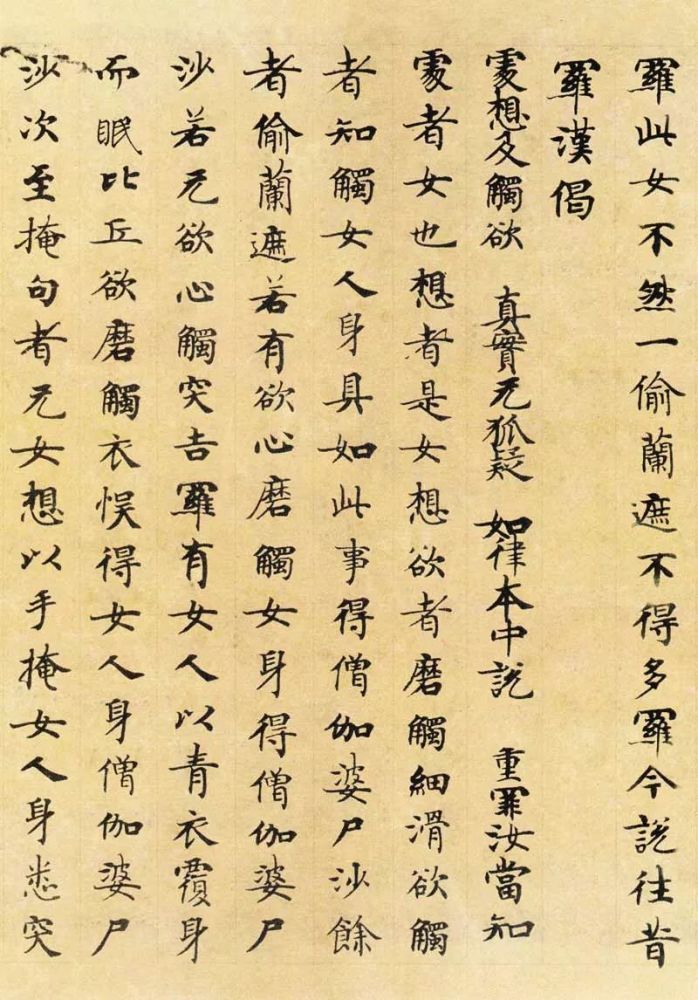 羅此女不然一偷蘭遮不得多羅今説往昔
羅漢偈
䖏想及觸欲　真實无狐疑　如律本中説　重罪汝當知
䖏者女也想者是女想欲者磨觸細滑欲觸
者知觸女人身具如此事得僧伽婆尸沙餘
者偷蘭遮若有欲心磨觸女身得僧伽婆尸
沙若无欲心觸突吉羅有女人以青衣覆身
而眠比丘欲磨觸衣悮得女人身僧伽婆尸
沙次至掩句者无女想以手掩女人身悉突